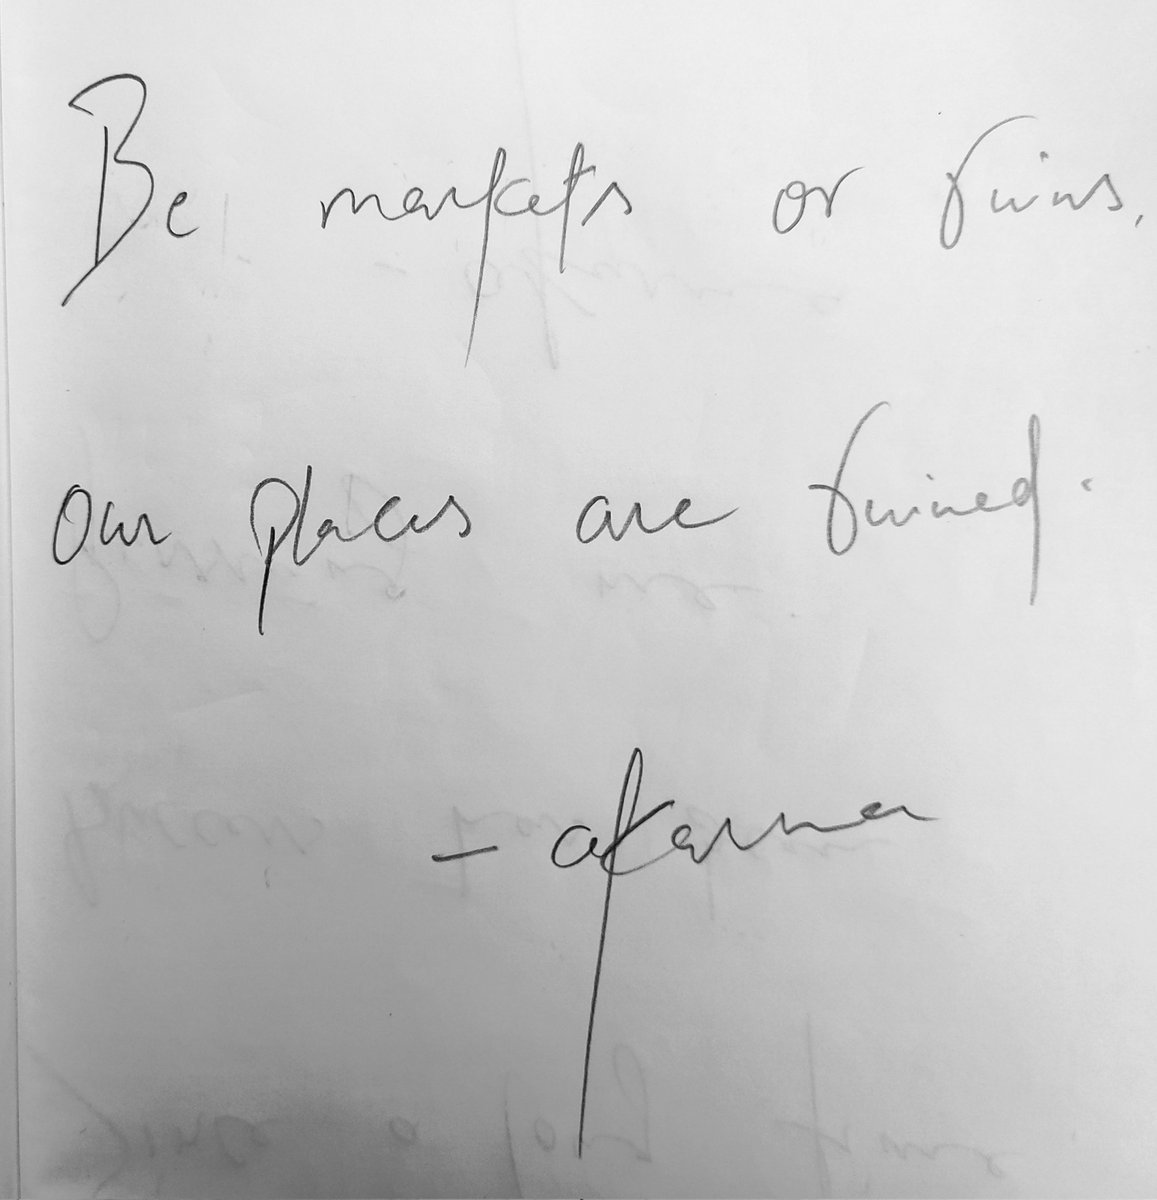 Be markets or ruins,
our places are ruined.
- akarma